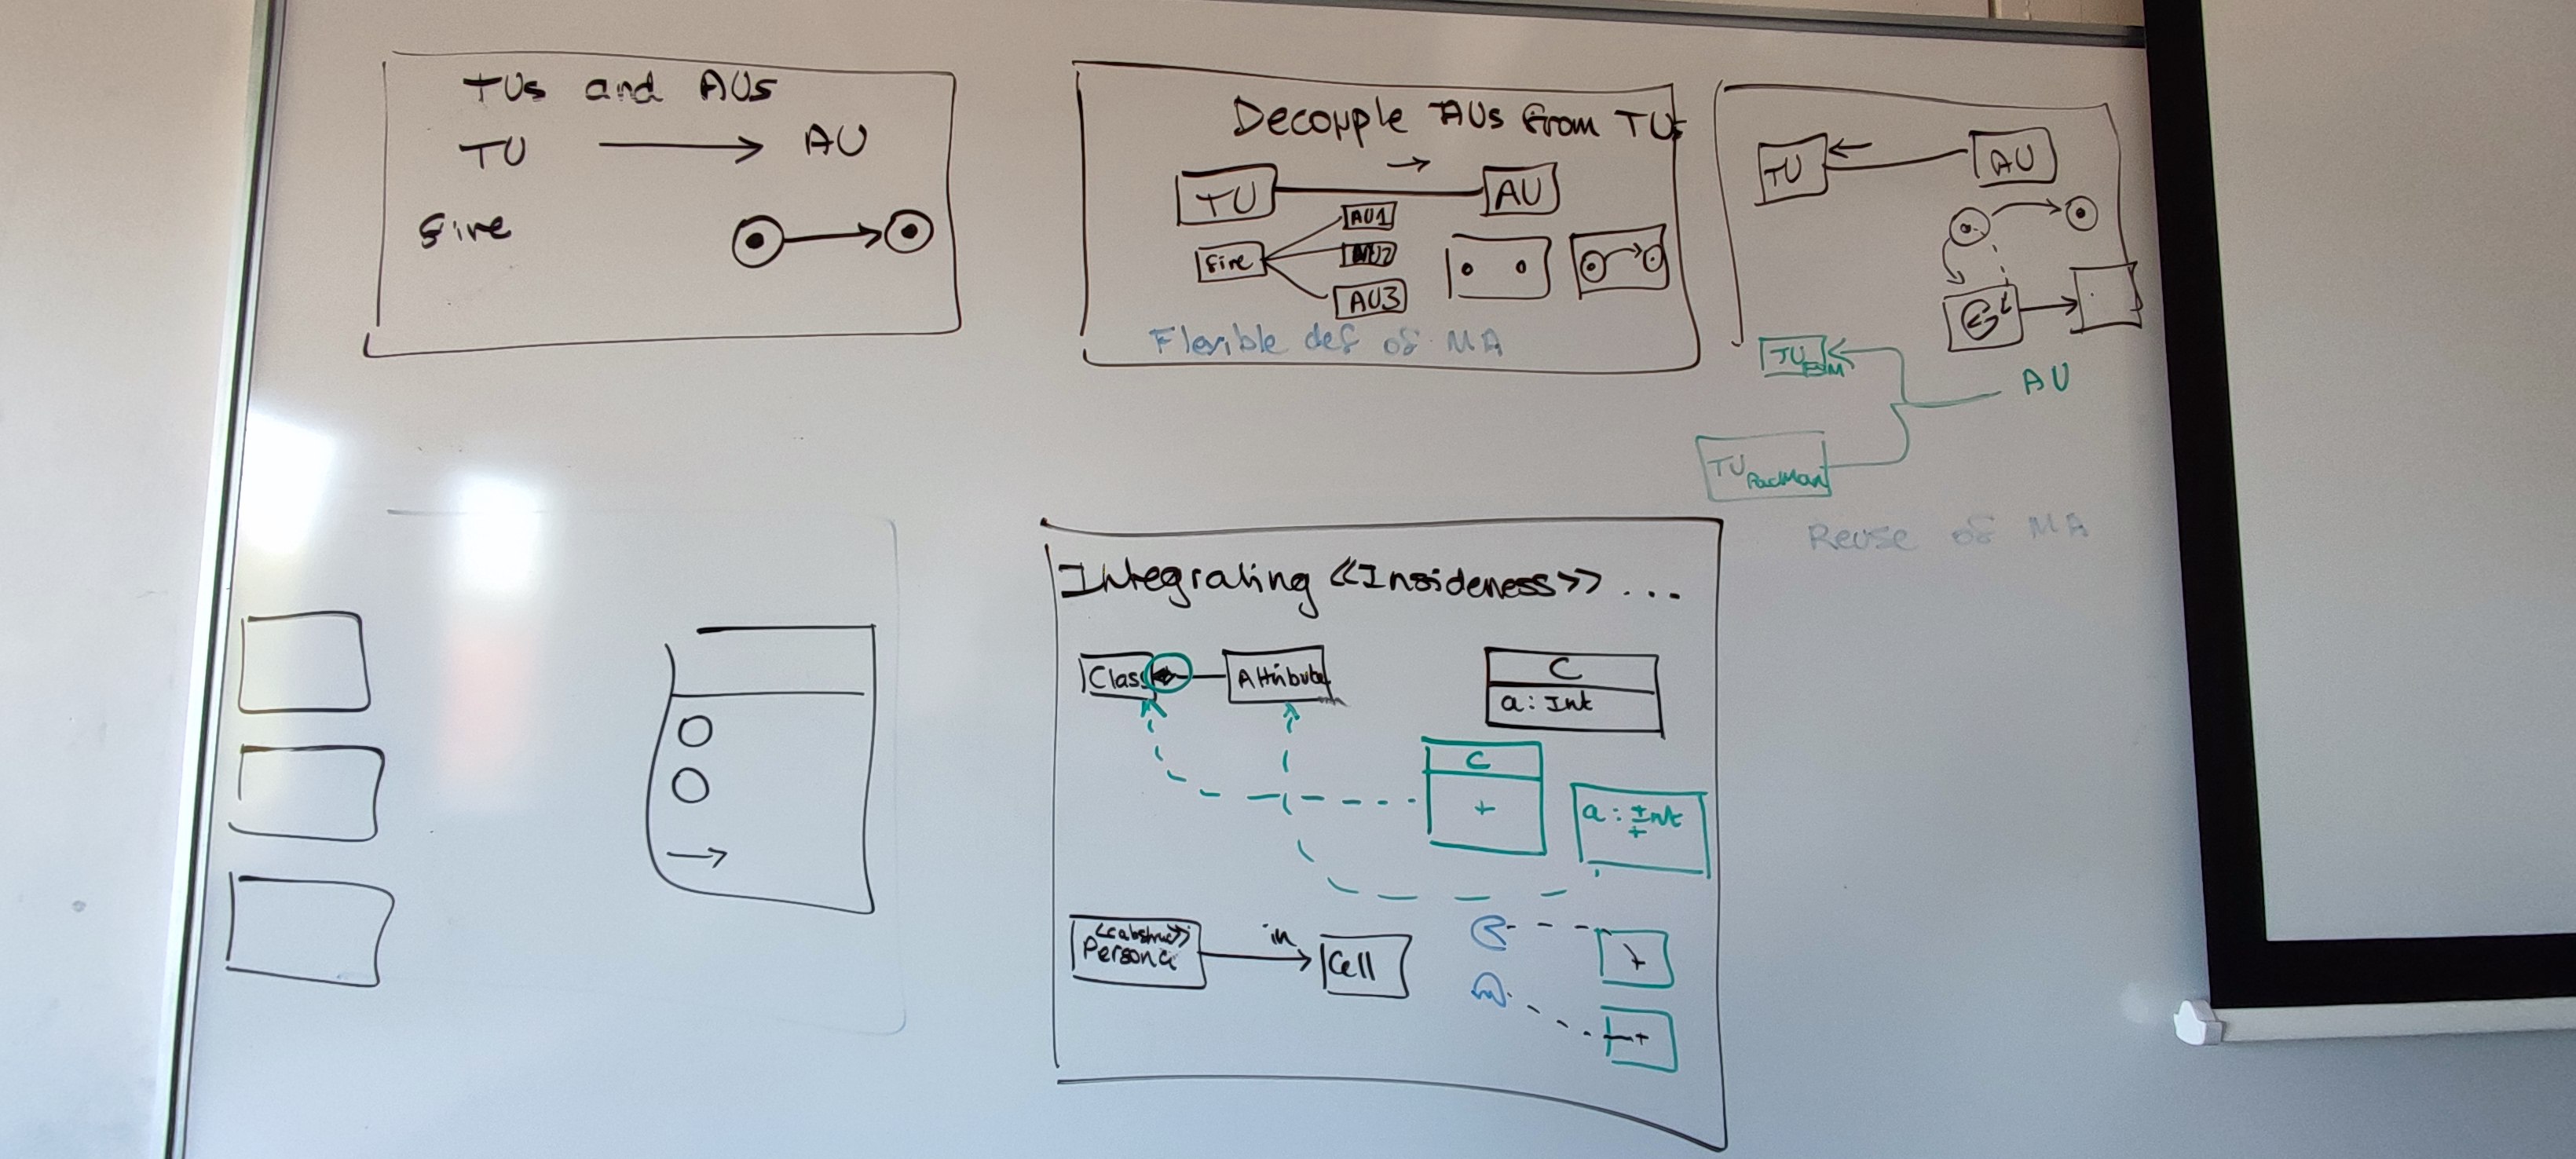 TUs and AUs
TU → AU
Fire
Decouple AUs from TUs
→
TU AU
Fire
AU1
AU2
AU3
Flexible def of MA
TU AU
TU FSM
AU
TU PacMan
Reuse of MA
Integrating <<Insideness>> ...
Class Attribute
C
a: Int
C
+
a: Int
+
<<abstract>>
Persona
in
Cell
+
+